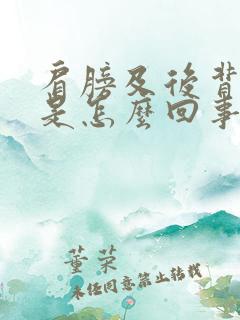 肩膀及後背
是怎麼回事
董荣
未经同意禁止转载